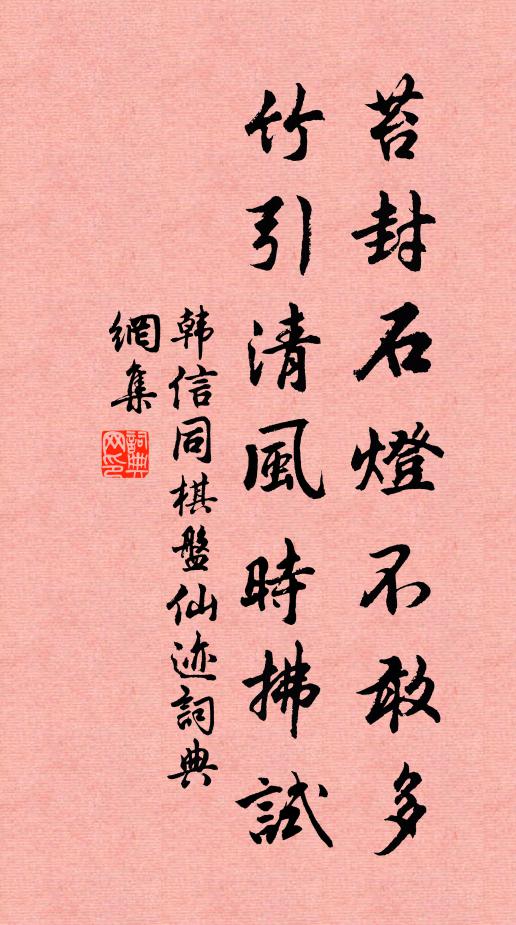 苔封石燈不敢多
竹引清風時拂試
韩信同棋盤仙迹詞典
網集
詞典网印